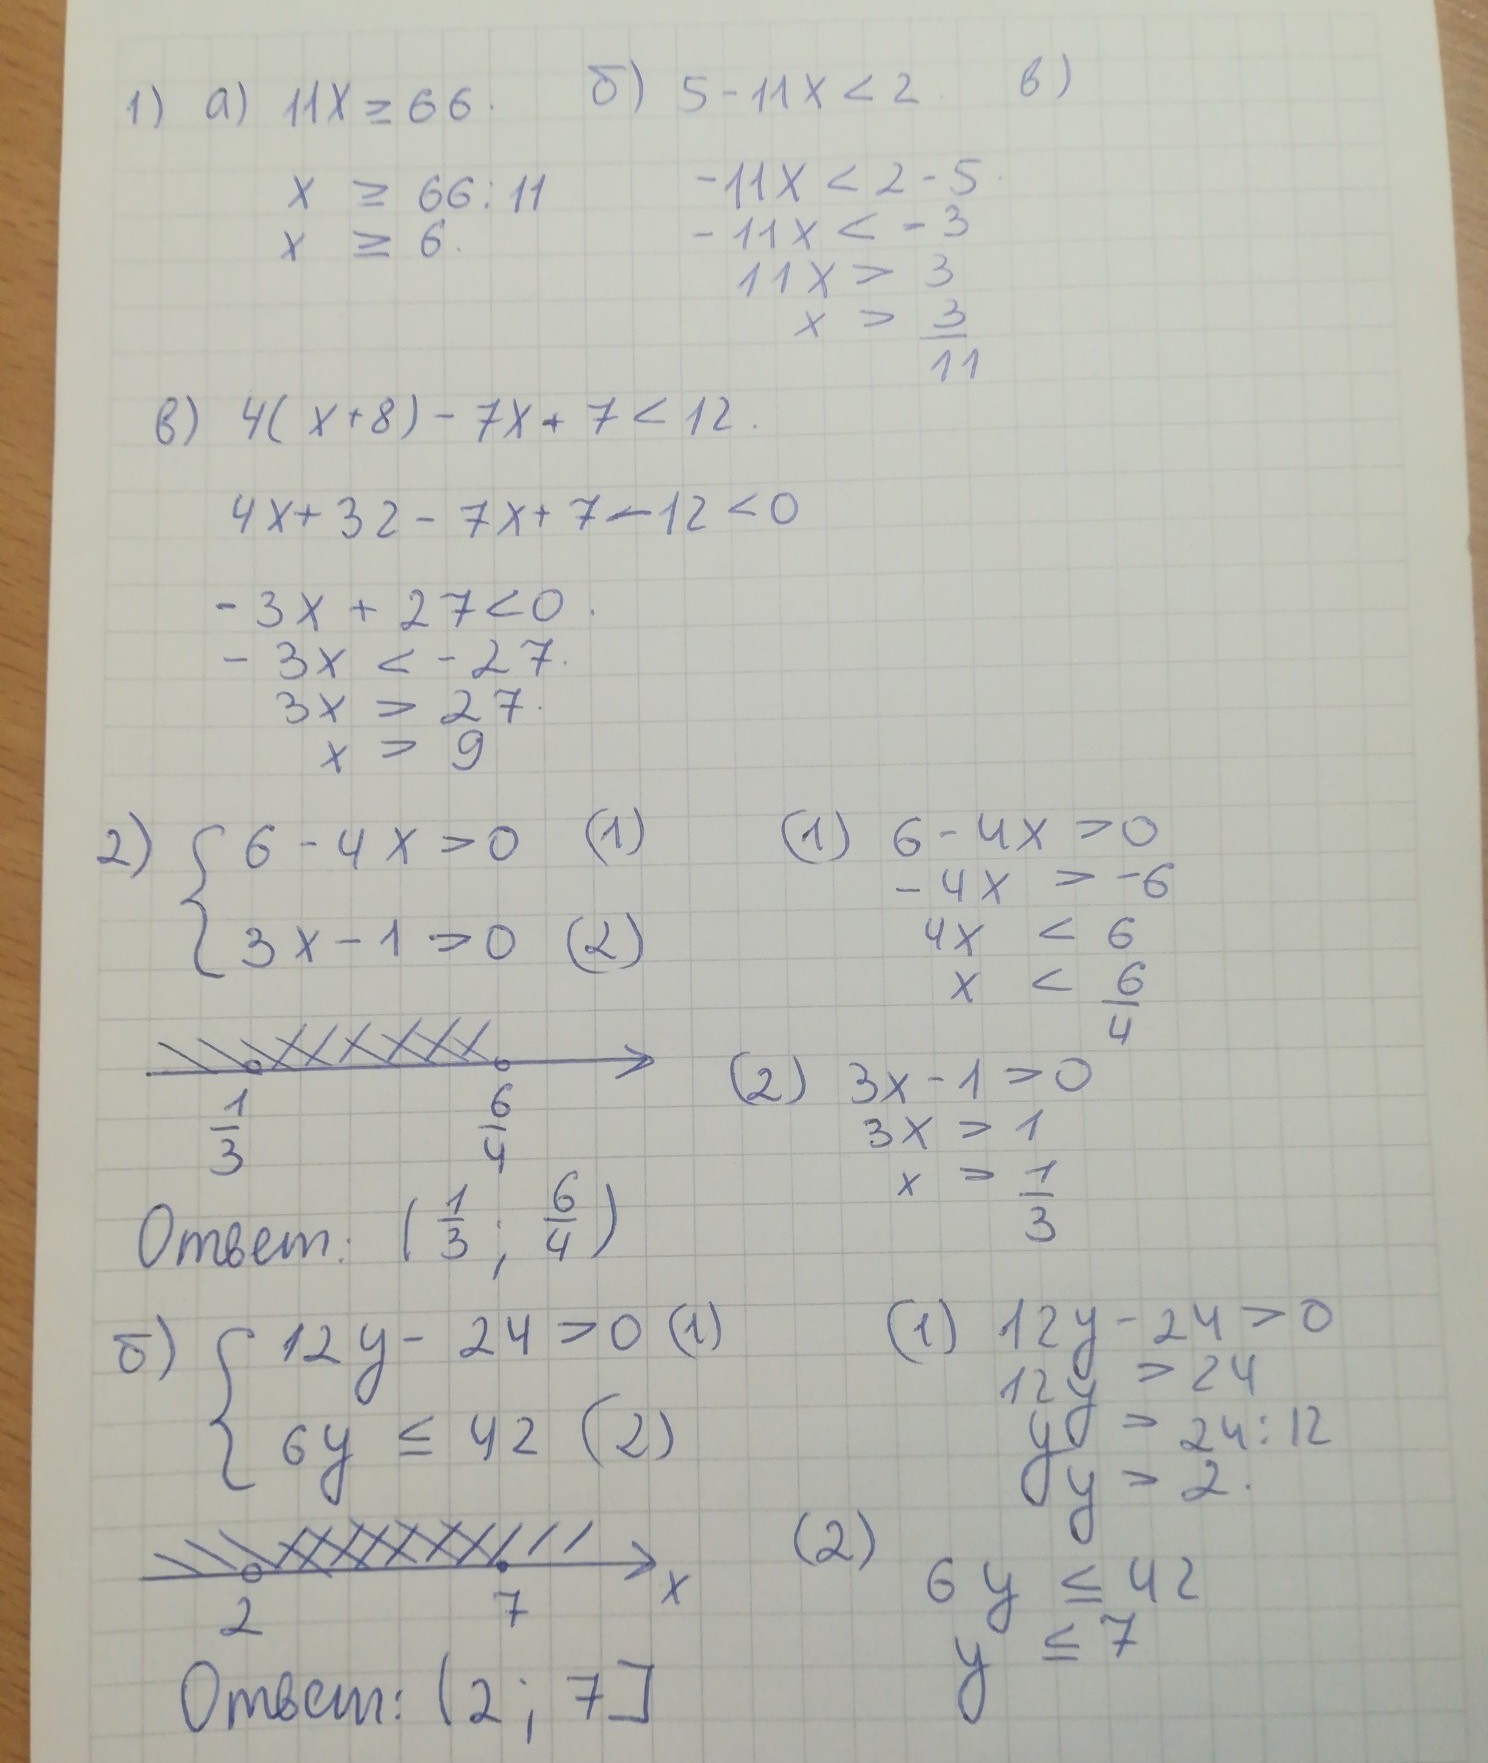 1) а) 11x ≥ 66. б) 5 - 11x < 2. в)
x ≥ 66 : 11
x ≥ 6.
-11x < 2 - 5.
-11x < -3
11x > 3
x > 3/11
в) 4(x+8) - 7x + 7 < 12.
4x + 32 - 7x + 7 - 12 < 0
-3x + 27 < 0.
-3x < -27.
3x > 27.
x > 9
2) { 6 - 4x > 0 (1)
3x - 1 > 0 (2)
(1) 6 - 4x > 0
-4x > -6
4x < 6
x < 6/4
(2) 3x - 1 > 0
3x > 1
x > 1/3
1/3 6/4
Ответ: (1/3 ; 6/4)
б) { 12y - 24 > 0 (1)
6y ≤ 42 (2)
(1) 12y - 24 > 0
12y > 24
y > 24 : 12
y > 2.
(2) 6y ≤ 42
y ≤ 7
2 7 x
Ответ: (2 ; 7]